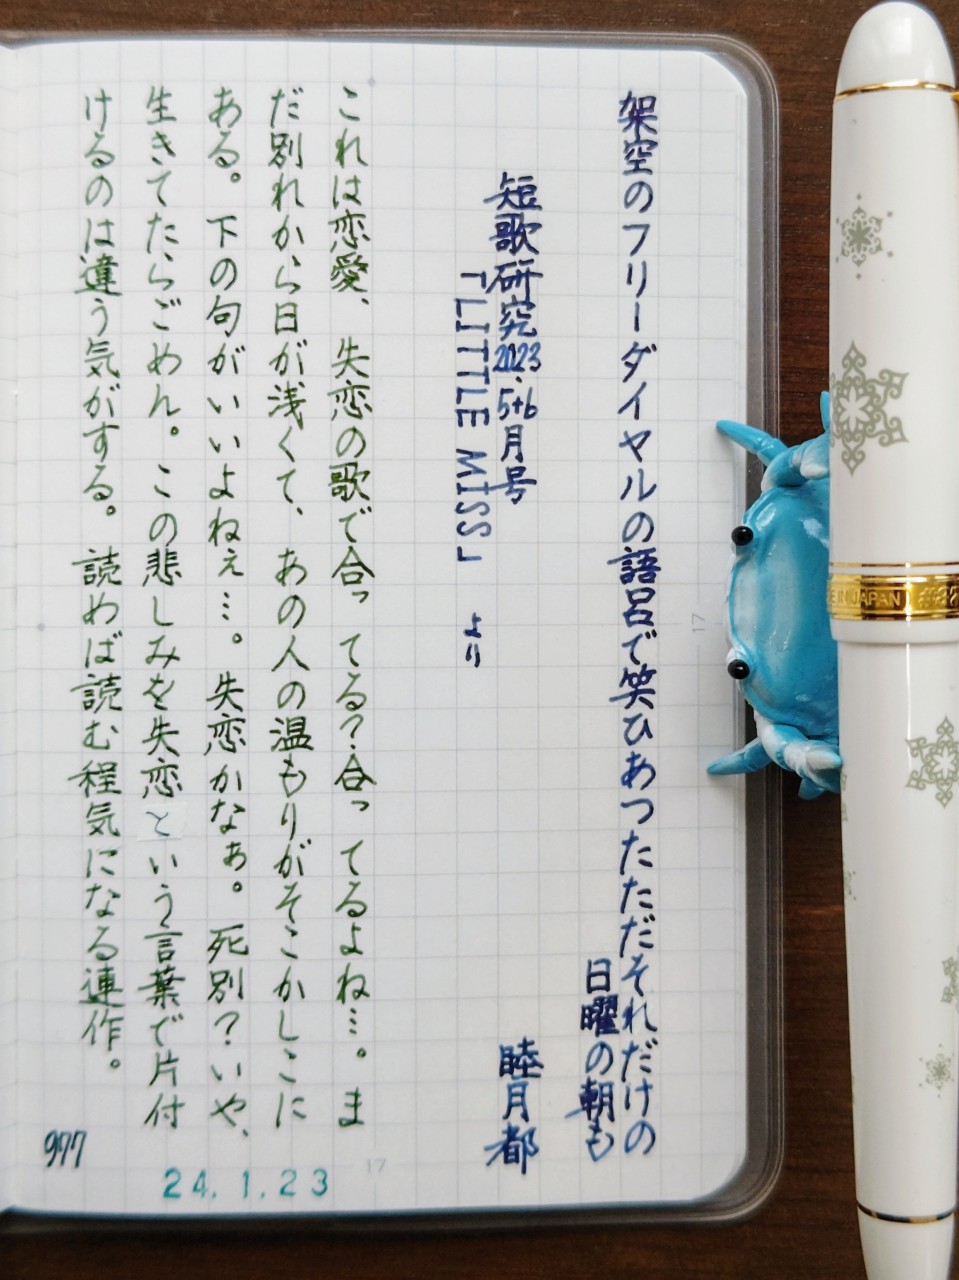 架空のフリーダイヤルの語呂で笑ひあつたただそれだけの
日曜の朝も
短歌研究2023.5+6月号
「LITTLE MISS」 より
睦月都
これは恋愛、失恋の歌で合ってる?合ってるよね…。ま
だ別れから日が浅くて、あの人の温もりがそこかしこに
ある。下の句がいいよねぇ…。失恋かなぁ。死別?いや、
生きてたらごめん。この悲しみを失恋という言葉で片付
けるのは違う気がする。読めば読む程気になる連作。
977
24.1.23
17
17
MADE IN JAPAN